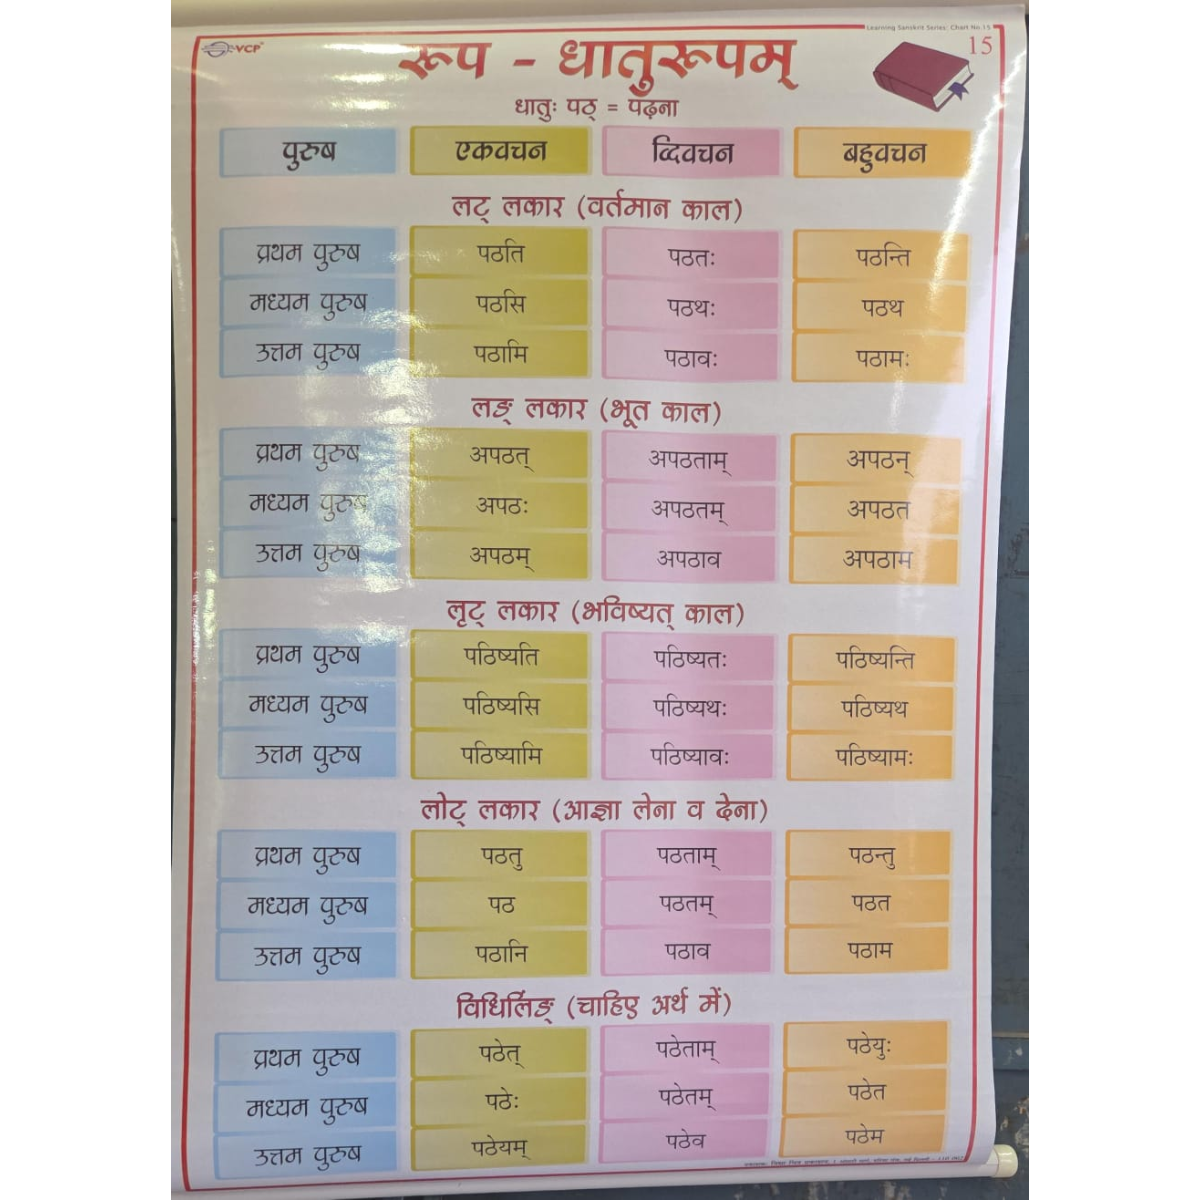 Learning Sanskrit Series: Chart No.15
VCP
15
रूप - धातुरूपम्
धातुः पठ् = पढ़ना
पुरुष एकवचन द्विवचन बहुवचन
लट् लकार (वर्तमान काल)
प्रथम पुरुष पठति पठतः पठन्ति
मध्यम पुरुष पठसि पठथः पठथ
उत्तम पुरुष पठामि पठावः पठामः
लङ् लकार (भूत काल)
प्रथम पुरुष अपठत् अपठताम् अपठन्
मध्यम पुरुष अपठः अपठतम् अपठत
उत्तम पुरुष अपठम् अपठाव अपठाम
लृट् लकार (भविष्यत् काल)
प्रथम पुरुष पठिष्यति पठिष्यतः पठिष्यन्ति
मध्यम पुरुष पठिष्यसि पठिष्यथः पठिष्यथ
उत्तम पुरुष पठिष्यामि पठिष्यावः पठिष्यामः
लोट् लकार (आज्ञा लेना व देना)
प्रथम पुरुष पठतु पठताम् पठन्तु
मध्यम पुरुष पठ पठतम् पठत
उत्तम पुरुष पठानि पठाव पठाम
विधिर्लिङ् (चाहिए अर्थ में)
प्रथम पुरुष पठेत् पठेताम् पठेयुः
मध्यम पुरुष पठेः पठेतम् पठेत
उत्तम पुरुष पठेयम् पठेव पठेम